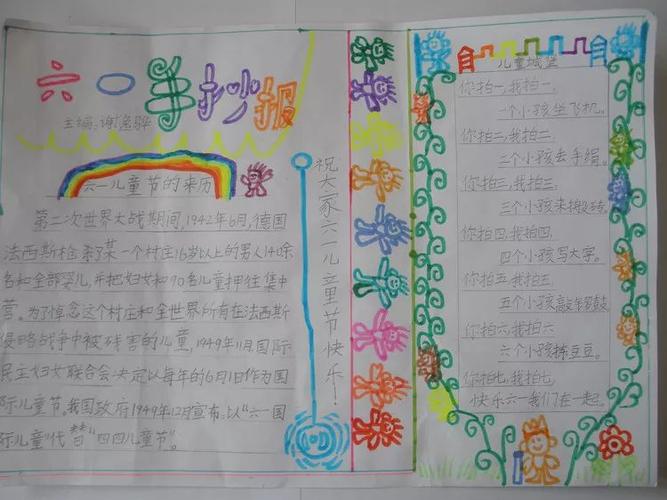 六一手抄报
主编:谢
六一儿童节的来历
第二次世界大战期间,1942年6月,德国
法西斯枪杀了某一个村庄16岁以上的男人140余
名和全部婴儿,并把妇女和90名儿童押往集中
营。为了悼念这个村庄和全世界所有在法西斯
侵略战争中被残害的儿童,1949年11月国际
民主妇女联合会决定以每年的6月1日作为国
际儿童节。我国政府1949年12月宣布:以“六一国
际儿童”代替“四四儿童节”。
祝大家六一儿童节快乐!
儿童城堡
你拍一,我拍一,
一个小孩坐飞机。
你拍二,我拍二,
二个小孩丢手绢。
你拍三,我拍三,
三个小孩来
你拍四,我拍四,
四个小孩写大字。
你拍五,我拍五,
五个小孩敲锣鼓
你拍六,我拍六
六个小孩拣豆豆。
你拍七,我拍七,
快乐六一我们在一起。